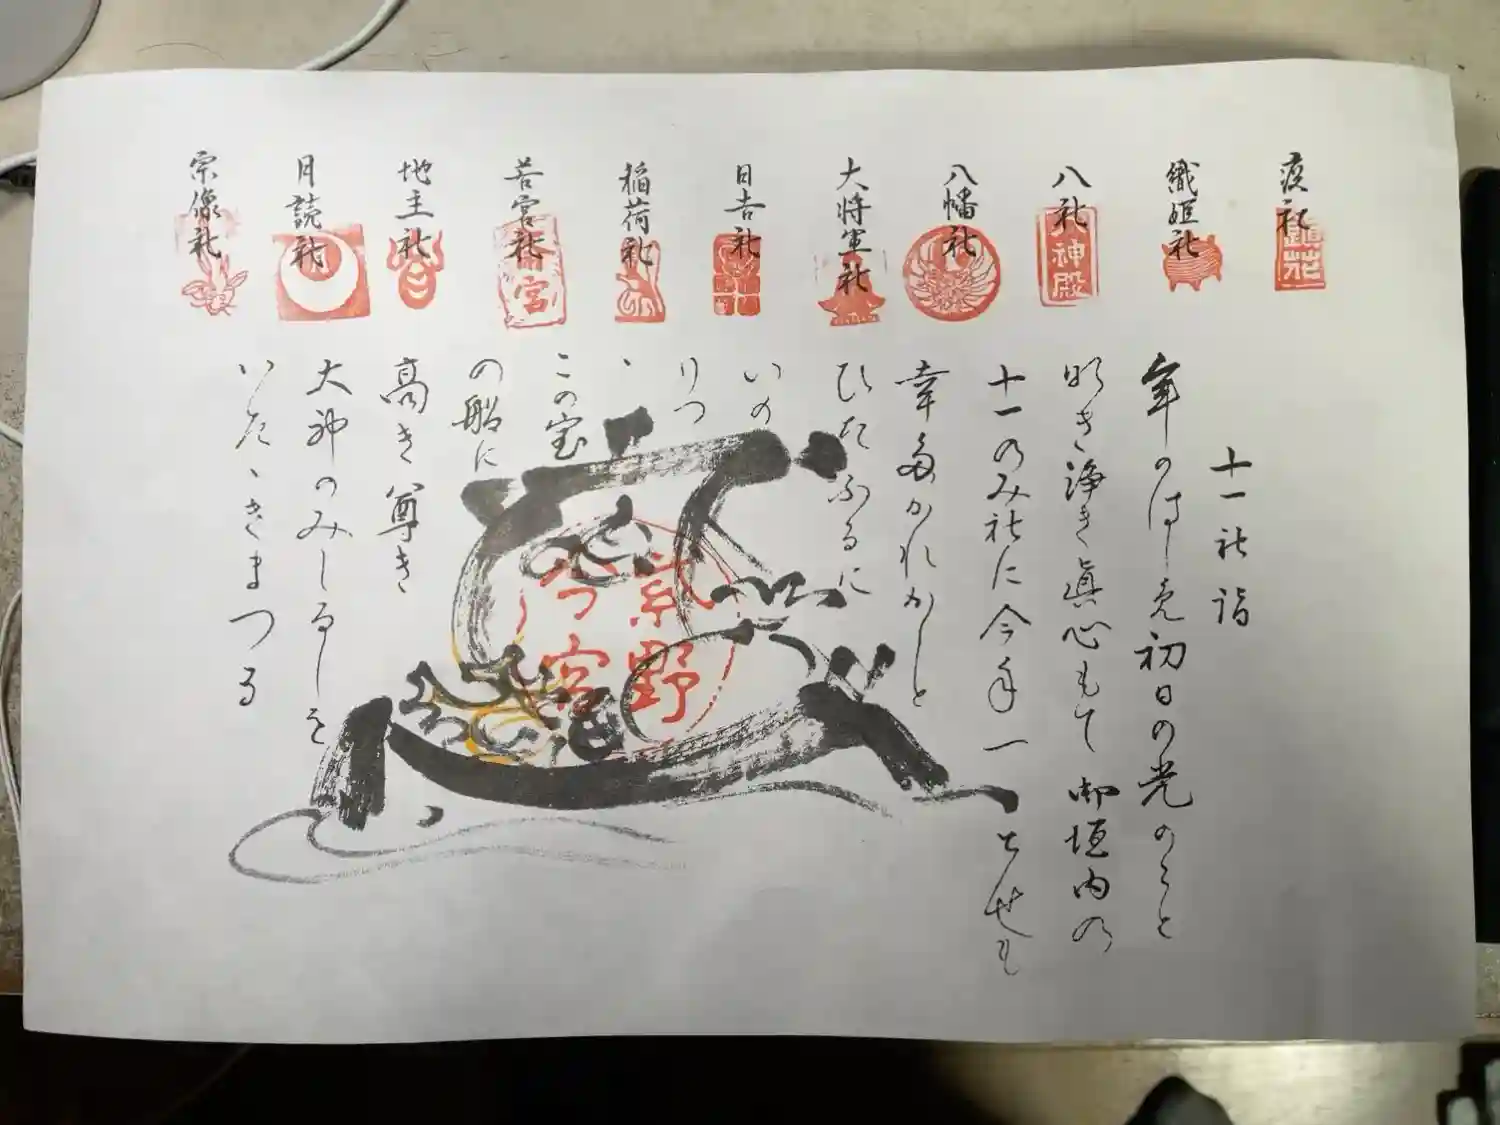 疫社
織姫社
八社
八幡社
大将軍社
日吉社
稲荷社
若宮社
地主社
月読社
宗像社
神殿
宮
十一社詣
年のはしめ初日の光のこと
明き浄き真心もて御垣内の
十一のみ社に今年一とせも
幸多かれかしと
ひたふるに
いの
りつ
ゝ
この宝
の船に
高き尊き
大神のみしるしを
いたゝきまつる
紫野
今宮